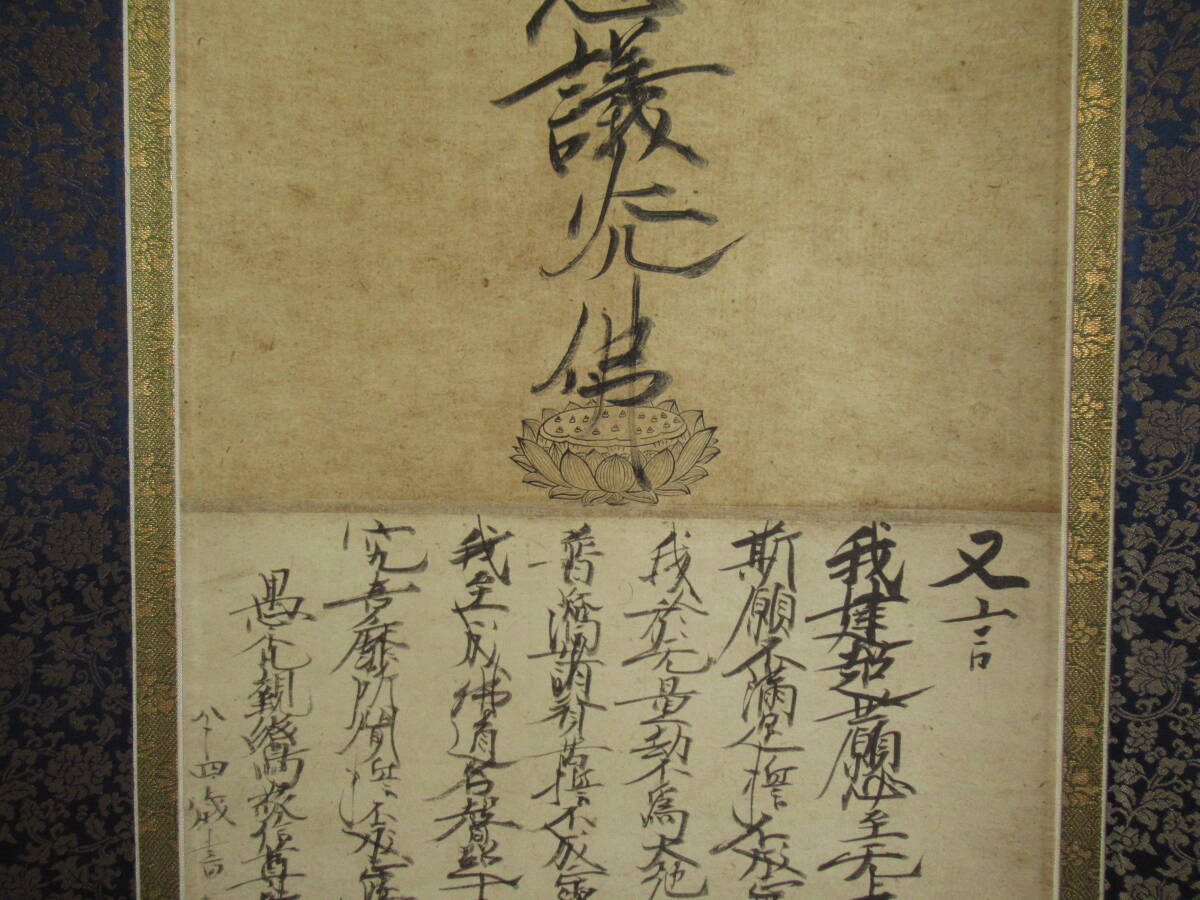 議
光
佛
又言
我建超世願必至无上
斯願不滿足誓不成
我於无量劫不爲大施
普濟諸貧苦誓不成
我至成佛道名聲超十
究竟靡所聞誓不成
愚禿親鸞敬信尊
八十四歳書